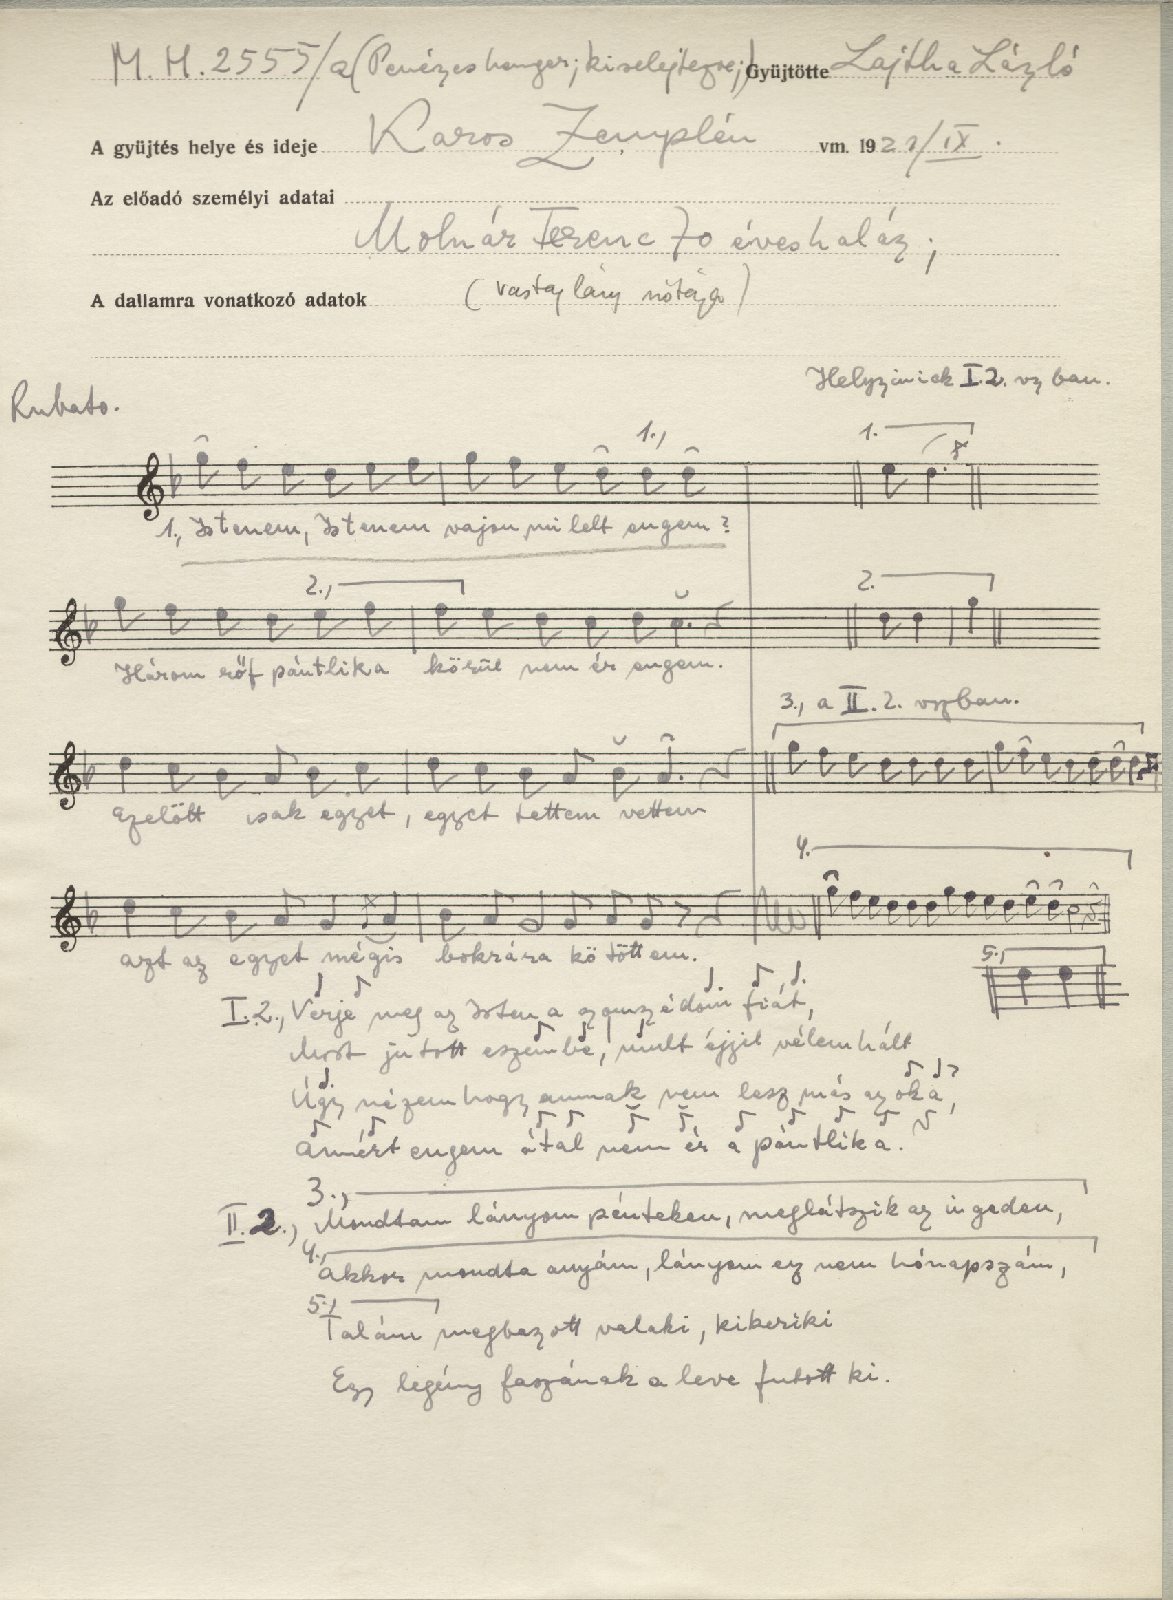 M. H. 2555/a (Penészes henger; kiselejtezve;) Gyüjtötte Lajtha László
A gyüjtés helye és ideje Karos Zemplén vm. 1921/IX.
Az előadó személyi adatai
Molnár Ferenc 70 éves halász;
A dallamra vonatkozó adatok (vastag lány nótája)
Helyszíniek I.2. vsz ban.
Rubato.
1., 1.
1., Istenem, Istenem vajon mi lelt engem?
2., 2.
Három rőf pántlika körül nem ér engem.
3., a II. 2. vszban.
Ezelőtt csak egyet, egyet tettem vettem
4.
azt az egyet mégis bokrára kötöttem.
5.,
I. 2., Verje meg az Isten a szomszédom fiát,
Most jutott eszembe, mult éjjel vélem hált
Úgy nézem hogy annak nem lesz más az oka,
Amért engem átal nem ér a pántlika.
3.,
II. 2., Mondtam lányom pénteken, meglátszik az ingeden,
4.,
Akkor mondta anyám, lányom ez nem hónapszám,
5.,
Talám megbaszott valaki, kikeriki
Egy legény faszának a leve futott ki.